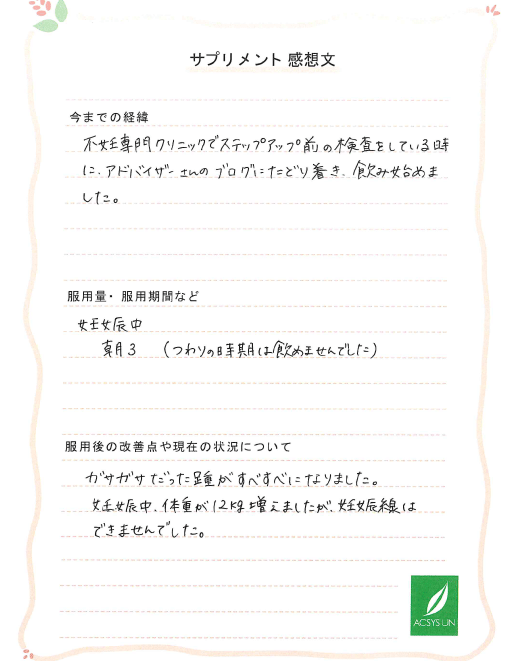 サプリメント 感想文
今までの経緯
不妊専門クリニックでステップアップ前の検査をしている時
に、アドバイザーさんのブログにたどり着き、飲み始めま
した。
服用量・服用期間など
妊娠中
朝3 (つわりの時期は飲めませんでした)
服用後の改善点や現在の状況について
ガサガサだった踵がすべすべになりました。
妊娠中、体重が12kg増えましたが、妊娠線は
できませんでした。
ACSYS LIN